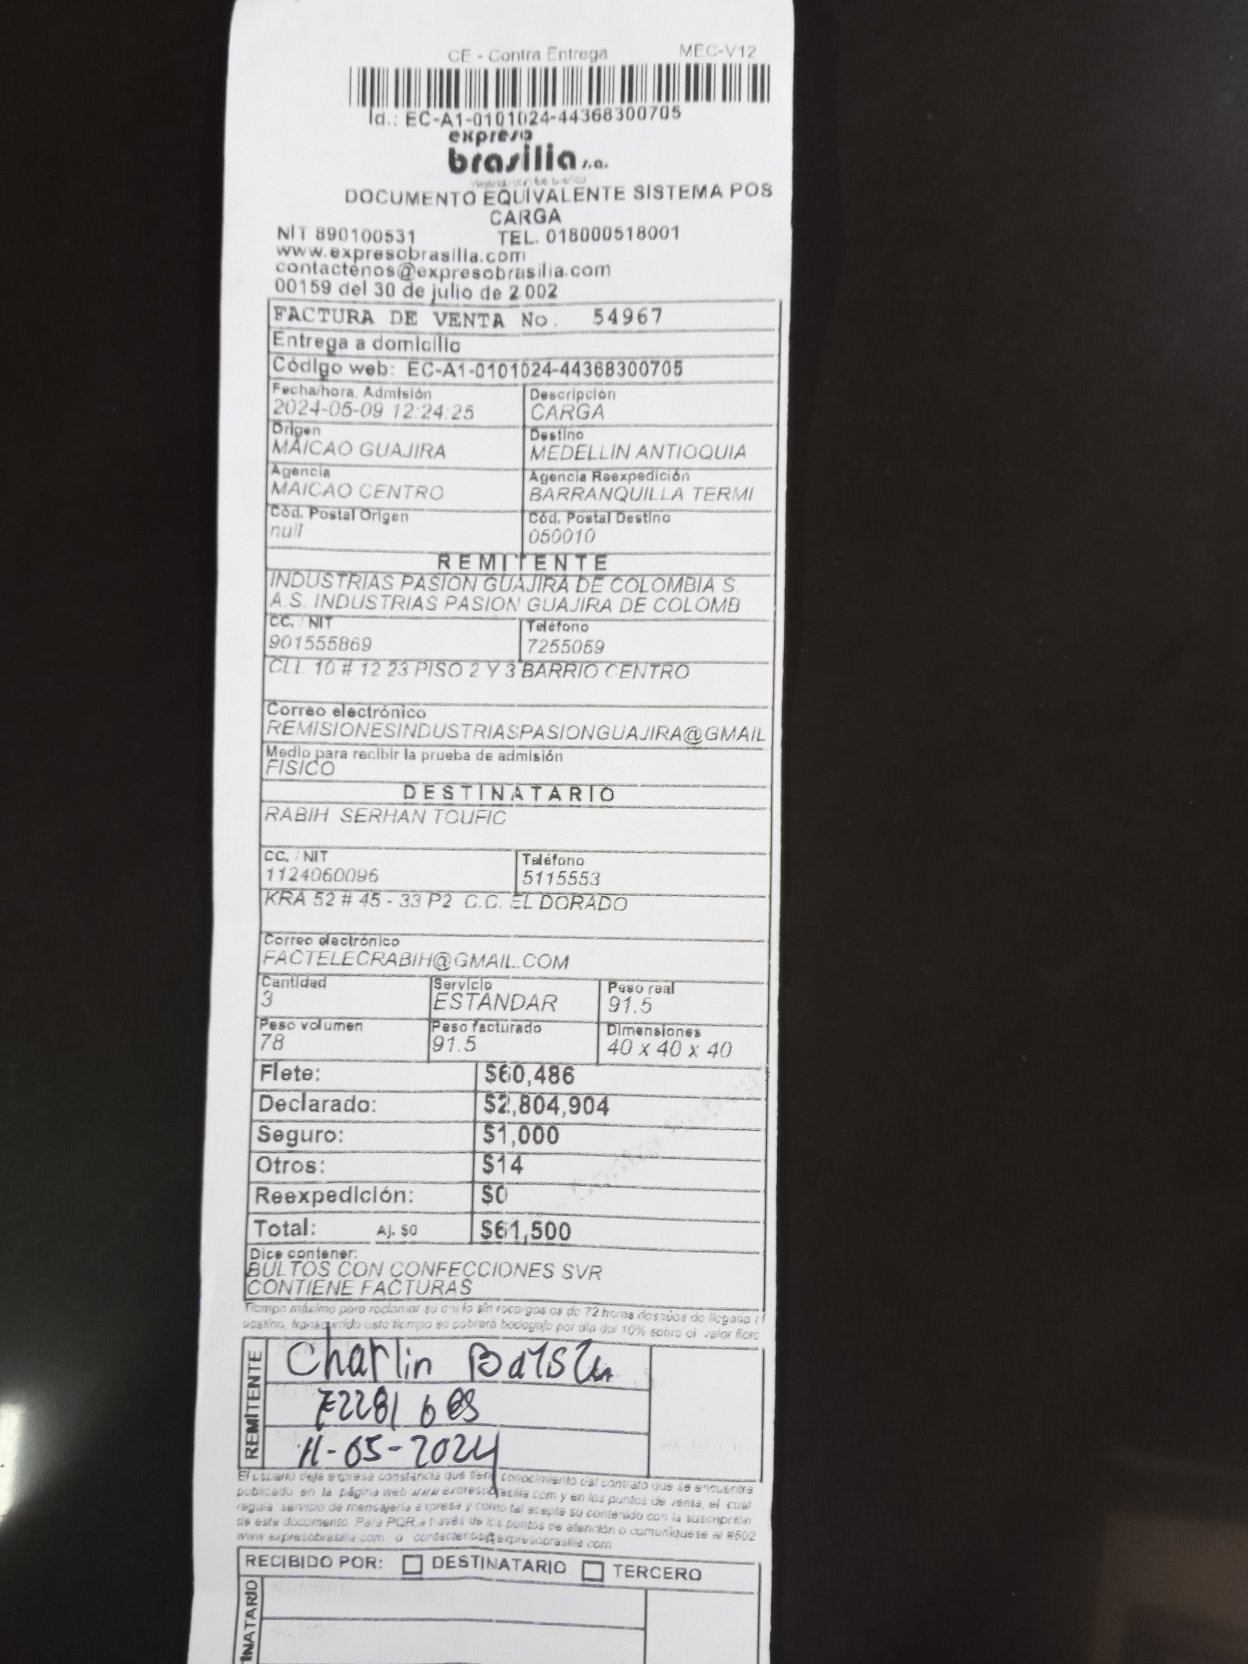 CE - Contra Entrega MEC-V12
Id.: EC-A1-0101024-44368300705
expreso
brasilia s.a.
DOCUMENTO EQUIVALENTE SISTEMA POS
CARGA
NIT 890100531 TEL. 018000518001
www.expresobrasilia.com
contactenos@expresobrasilia.com
00159 del 30 de julio de 2 002
FACTURA DE VENTA No. 54967
Entrega a domicilio
Código web: EC-A1-0101024-44368300705
Fecha/hora. Admisión Descripción
2024-05-09 12:24:25 CARGA
Origen Destino
MAICAO GUAJIRA MEDELLIN ANTIOQUIA
Agencia Agencia Reexpedición
MAICAO CENTRO BARRANQUILLA TERMI
Cód. Postal Origen Cód. Postal Destino
null 050010
REMITENTE
INDUSTRIAS PASION GUAJIRA DE COLOMBIA S.
A.S. INDUSTRIAS PASION GUAJIRA DE COLOMB
CC. / NIT Teléfono
901555869 7255059
CLL 10 # 12 23 PISO 2 Y 3 BARRIO CENTRO
Correo electrónico
REMISIONESINDUSTRIASPASIONGUAJIRA@GMAIL
Medio para recibir la prueba de admisión
FISICO
DESTINATARIO
RABIH SERHAN TOUFIC
CC. / NIT Teléfono
1124060096 5115553
KRA 52 # 45 - 33 P2 C.C. EL DORADO
Correo electrónico
FACTELECRABIH@GMAIL.COM
Cantidad Servicio Peso real
3 ESTANDAR 91.5
Peso volumen Peso facturado Dimensiones
78 91.5 40 x 40 x 40
Flete: $60,486
Declarado: $2,804,904
Seguro: $1,000
Otros: $14
Reexpedición: $0
Total: Aj. $0 $61,500
Dice contener:
BULTOS CON CONFECCIONES SVR
CONTIENE FACTURAS
Tiempo máximo para reclamar su envío sin recargos es de 72 horas después de llegada
destino, transcurrido este tiempo se cobrará bodegaje por día del 10% sobre el valor flete
REMITENTE
Charlin
11-05-2024
El usuario deja expresa constancia que tiene conocimiento del contrato que se encuentra
publicado en la página web www.expresobrasilia.com y en los puntos de venta, el cual
regula servicio de mensajería expresa y como tal acepta su contenido con la suscripción
de este documento. Para PQR a través de los puntos de atención o comuníquese al #502
www.expresobrasilia.com o contactenos@expresobrasilia.com
RECIBIDO POR: DESTINATARIO TERCERO
INATARIO